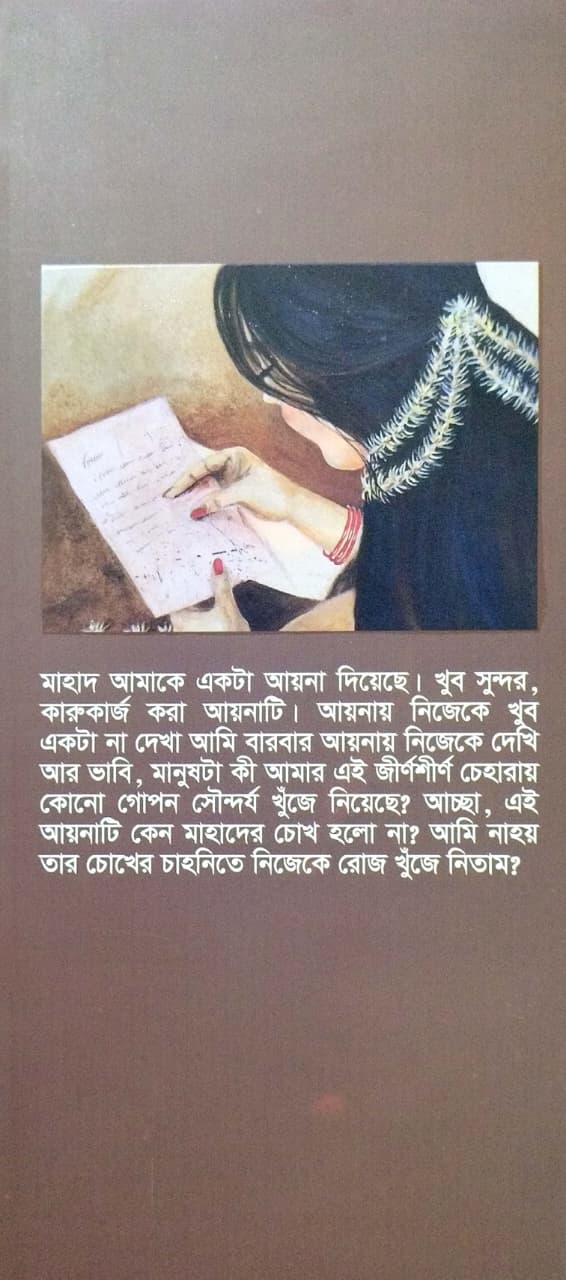 মাহাদ আমাকে একটা আয়না দিয়েছে। খুব সুন্দর,
কারুকার্জ করা আয়নাটি। আয়নায় নিজেকে খুব
একটা না দেখা আমি বারবার আয়নায় নিজেকে দেখি
আর ভাবি, মানুষটা কী আমার এই জীর্ণশীর্ণ চেহারায়
কোনো গোপন সৌন্দর্য খুঁজে নিয়েছে? আচ্ছা, এই
আয়নাটি কেন মাহাদের চোখ হলো না? আমি নাহয়
তার চোখের চাহনিতে নিজেকে রোজ খুঁজে নিতাম?